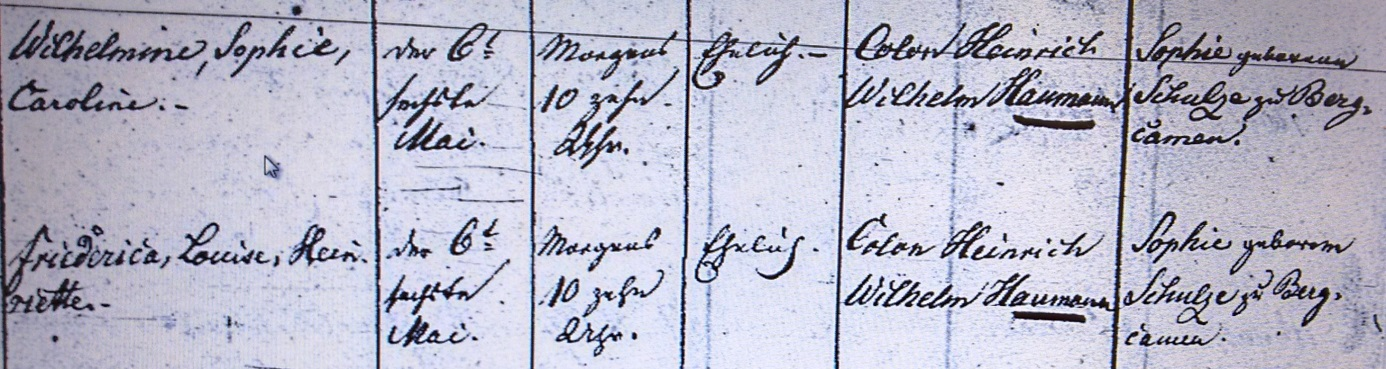 Wilhelmine, Sophie,
Caroline.-
der 6t
sechste
Mai.
Morgens
10 zehn
Uhr.
Ehelich.-
Colon Heinrich
Wilhelm Haumann
Sophie geborenen
Schulze zu Berg-
camen.
Friederica, Louise, Hein-
riette.-
der 6t
sechste
Mai.
Morgens
10 zehn
Uhr.
Ehelich.
Colon Heinrich
Wilhelm Haumann
Sophie geboren
Schulze zu Berg-
camen.